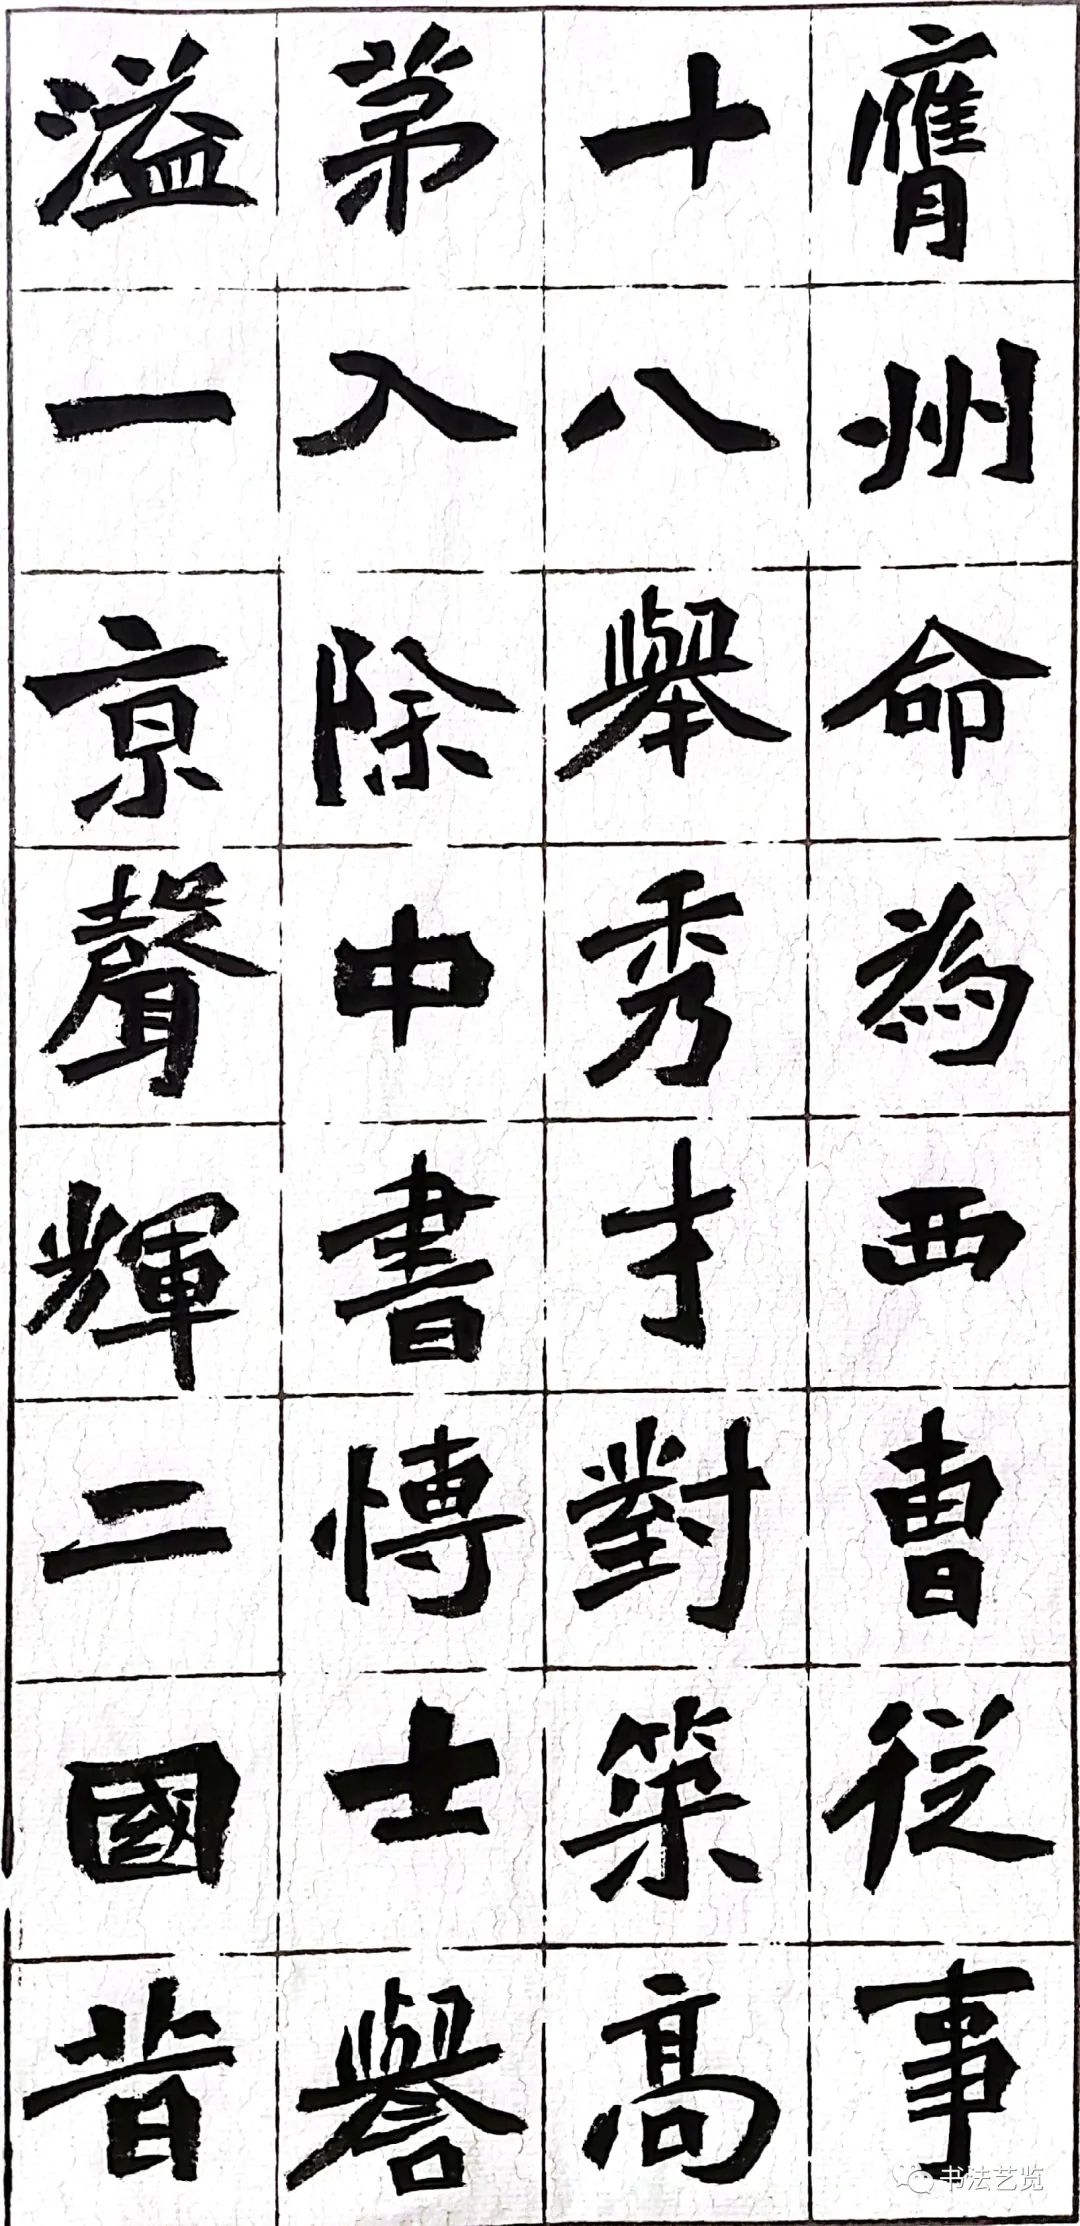 膺州命為西曹從事
十八舉秀才對策高
第入除中書博士譽
溢一京聲輝二國昔
书法艺览